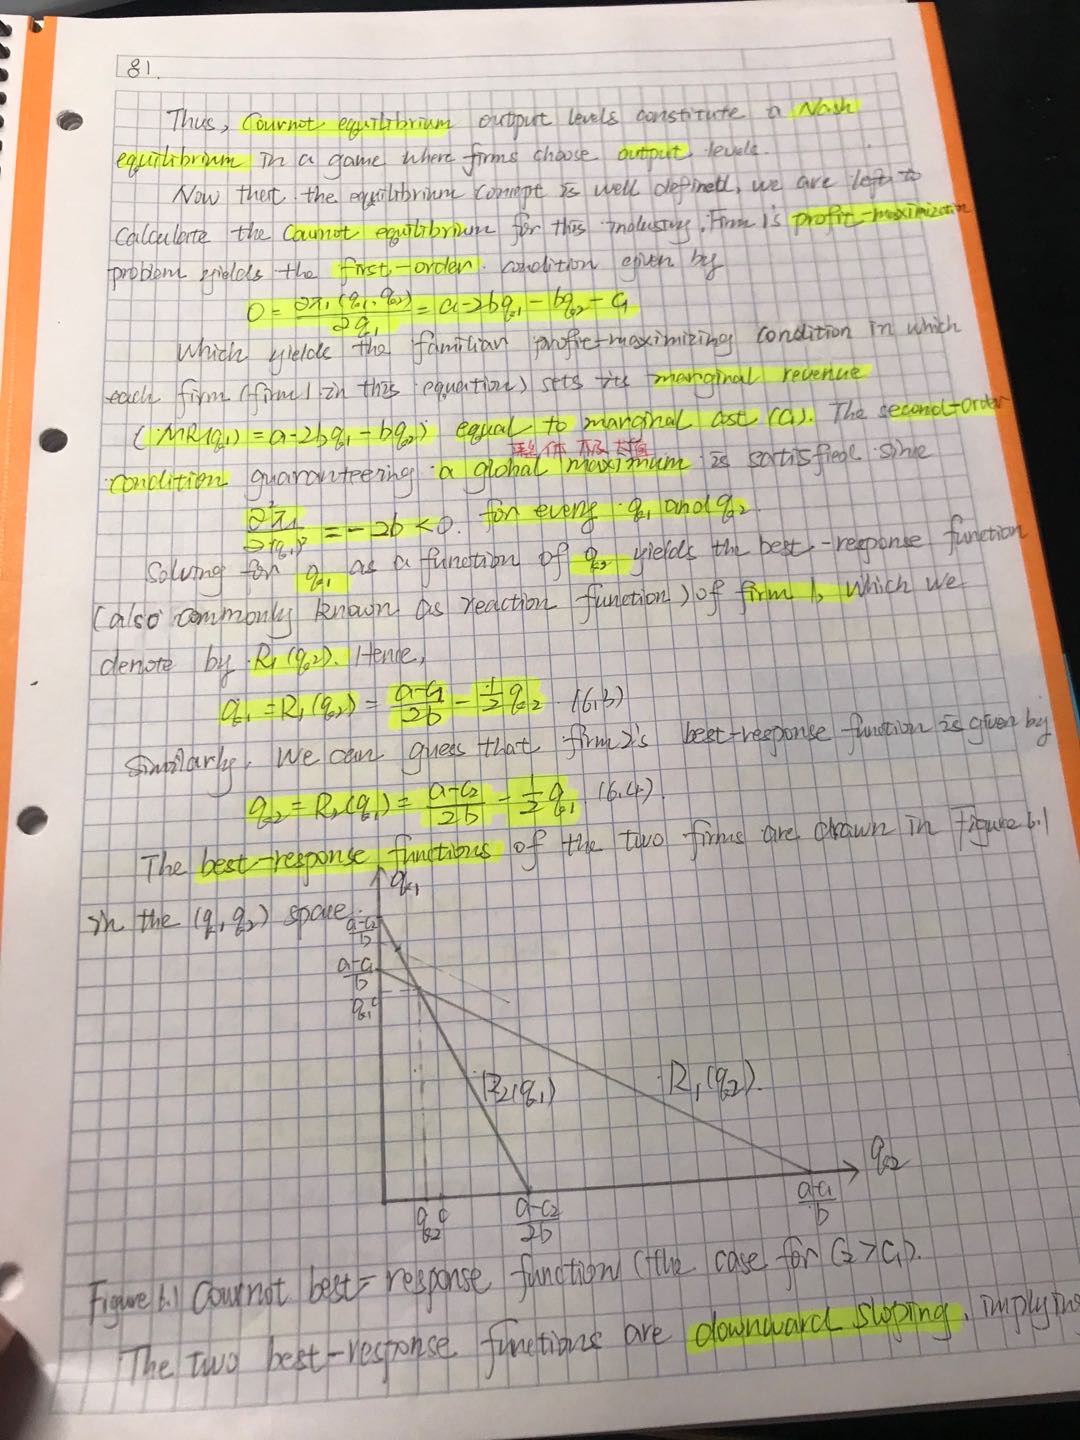 81.
Thus, Cournot equilibrium output levels constitute a Nash
equilibrium in a game where firms choose output levels.
Now that the equilibrium concept is well defined, we are left to
calculate the Cournot equilibrium for this industry. Firm 1's profit-maximization
problem yields the first-order condition given by
0 = ∂π₁(q₁,q₂)/∂q₁ = a-2bq₁-bq₂-c₁
Which yields the familiar profit-maximizing condition in which
each firm (firm 1 in this equation) sets its marginal revenue
(MR(q₁) = a-2bq₁-bq₂) equal to marginal cost (c₁). The second-order
整体极大值
condition guaranteering a global maximum is satisfied since
∂²π₁/∂(q₁)² = -2b < 0. for every q₁ and q₂.
Solving for q₁ as a function of q₂ yields the best-response function
(also commonly known as reaction function) of firm 1, which we
denote by R₁(q₂). Hence,
q₁ = R₁(q₂) = a-c₁/2b - 1/2 q₂ (6.3)
Similarly, We can guess that firm 2's best-response function is given by
q₂ = R₂(q₁) = a-c₂/2b - 1/2 q₁ (6.4)
The best-response functions of the two firms are drawn in Figure 6.1
in the (q₁,q₂) space.
q₁
a-c₂/b
a-c₁/b
q₁ᶜ
R₂(q₁)
R₁(q₂).
q₂
q₂ᶜ
a-c₂/2b
a-c₁/b
Figure 6.1 Cournot best-response function (the case for c₂>c₁).
The two best-response functions are downward sloping, implying